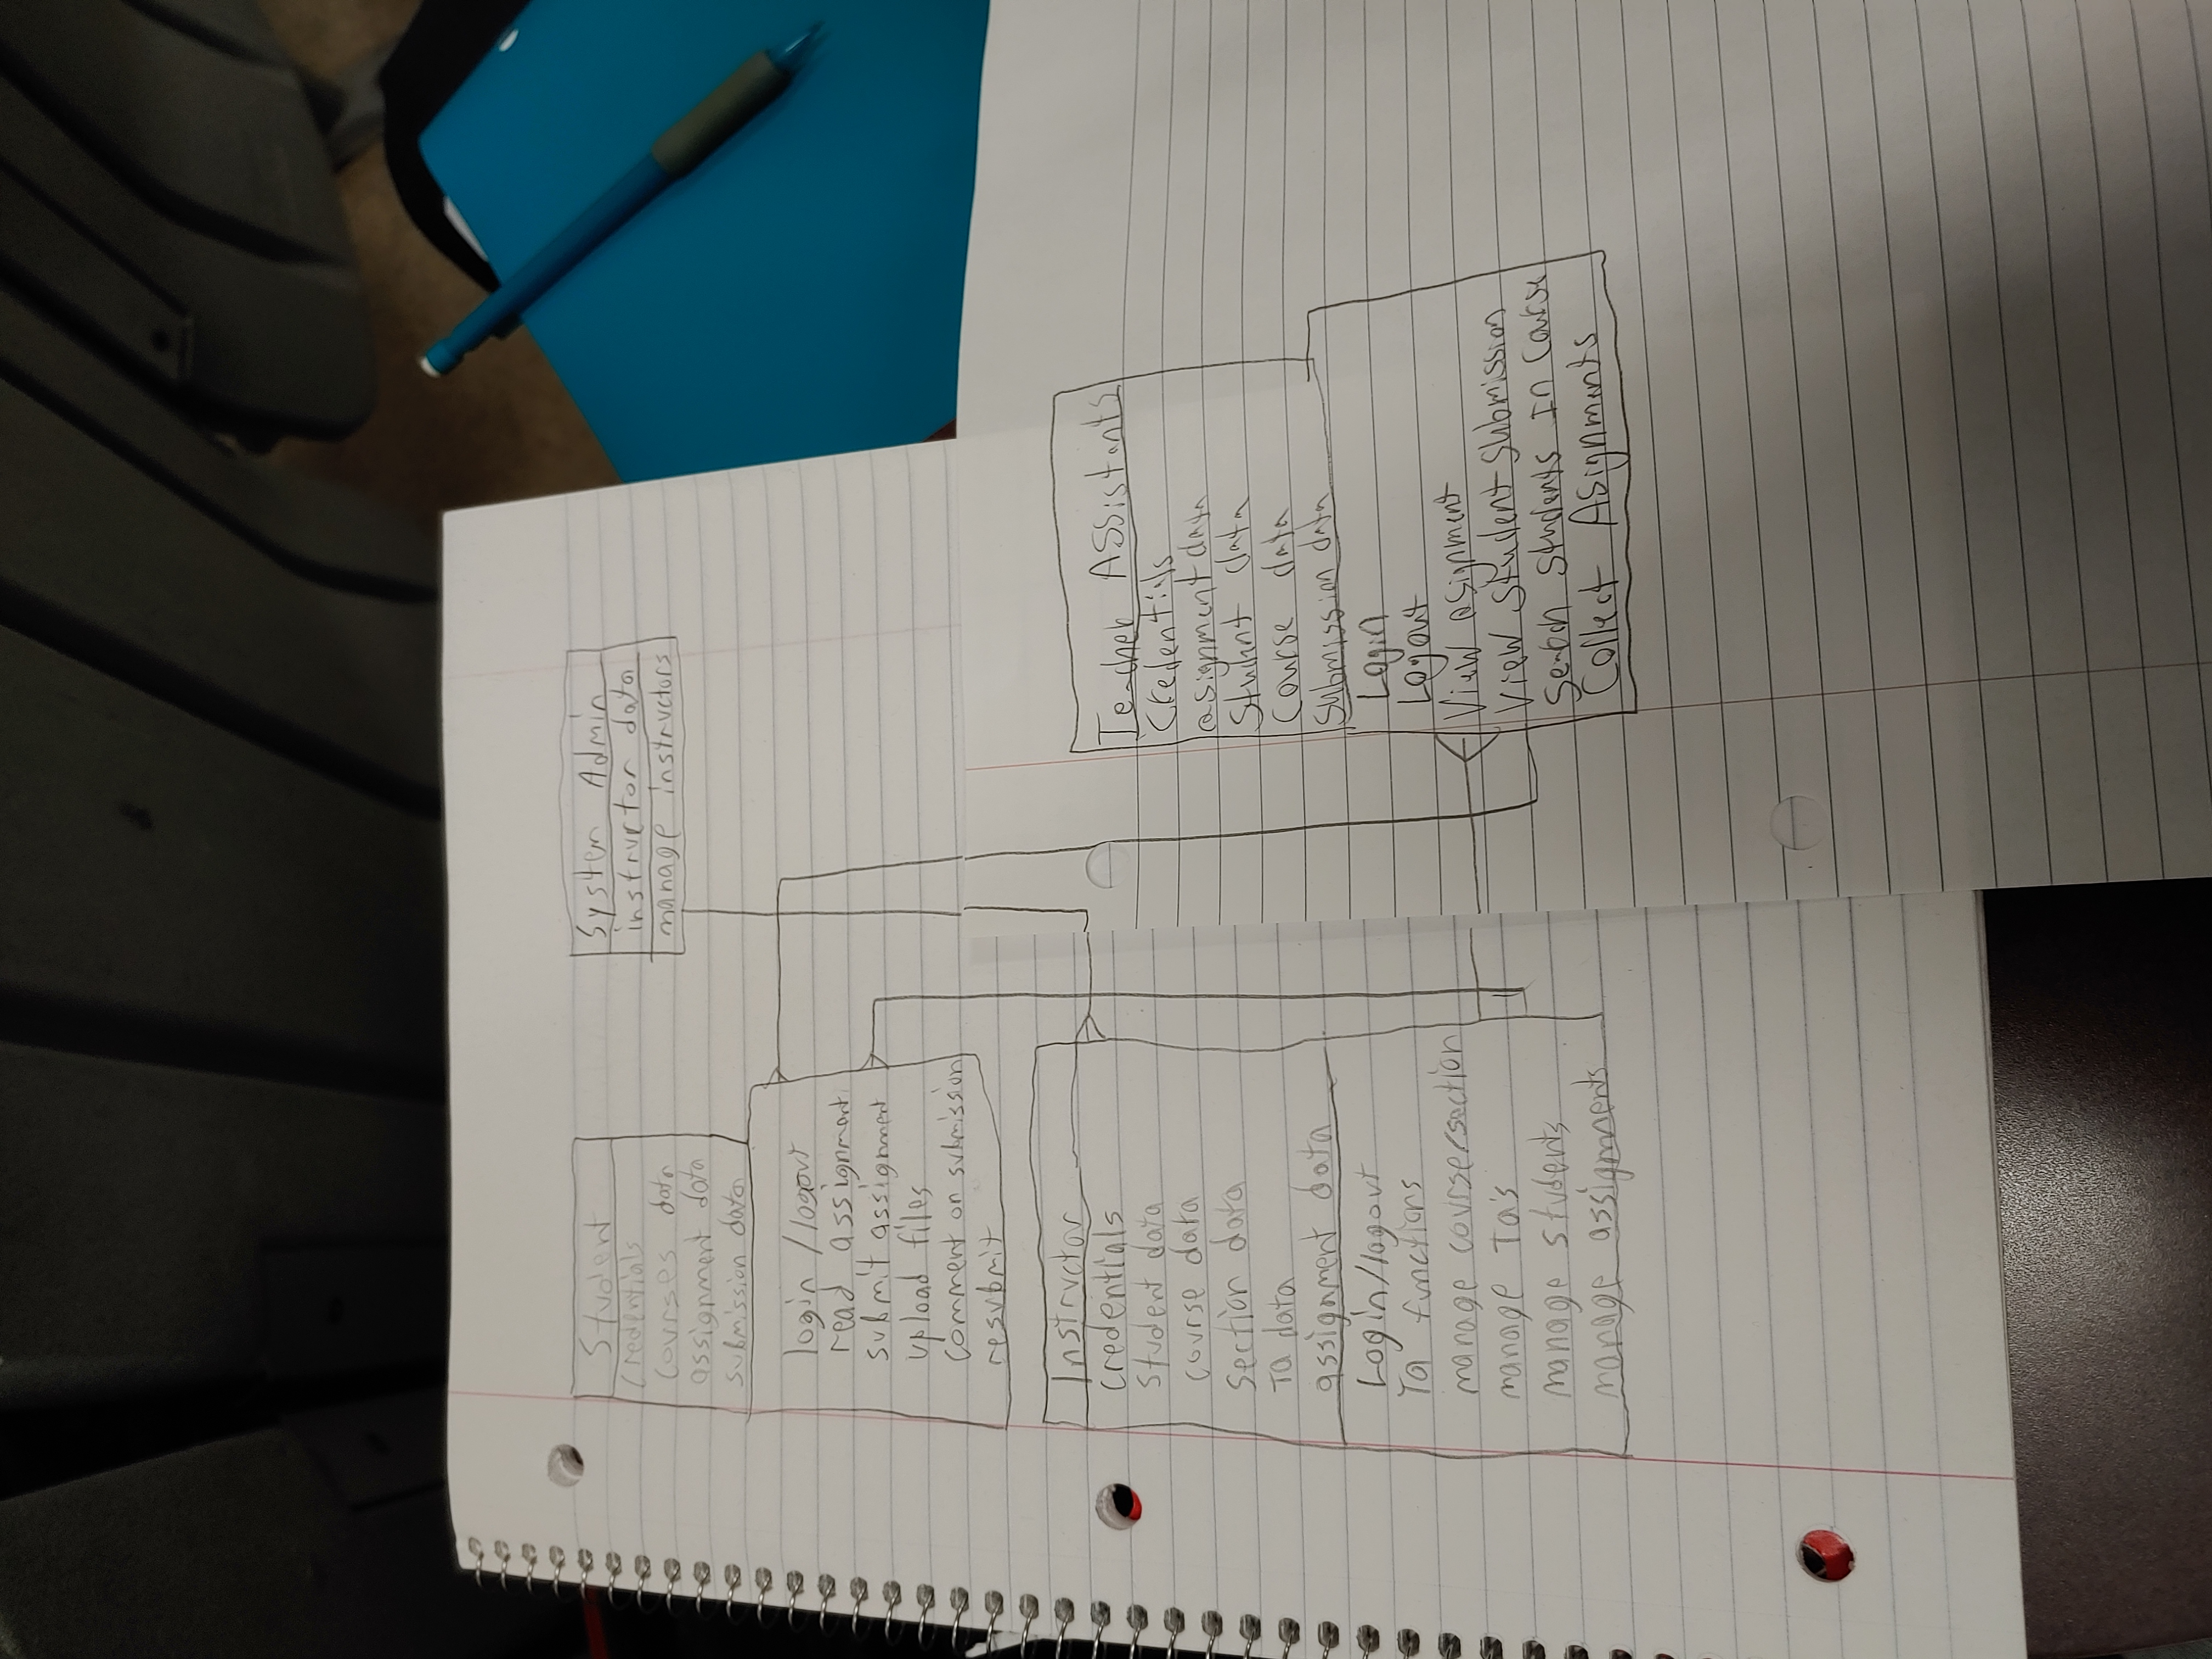 Student
credentials
courses data
assignment data
submission data
login /logout
read assignment
submit assignment
upload files
comment on submission
resubmit
System Admin
instructor data
manage instructors
Instructor
credentials
student data
course data
section data
TA data
assignment data
Login/logout
TA functions
manage course/section
manage TA's
manage students
manage assignments
Teacher Assistants
Credentials
asignment data
Student data
Course data
Submission data
Login
Logout
View asignment
View Student Submission
Search Students In Course
Collect Asignments